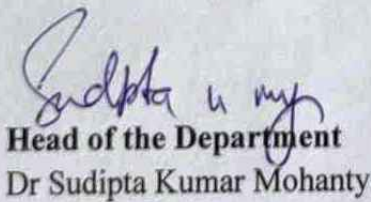 Sudipta K my
Head of the Department
Dr Sudipta Kumar Mohanty